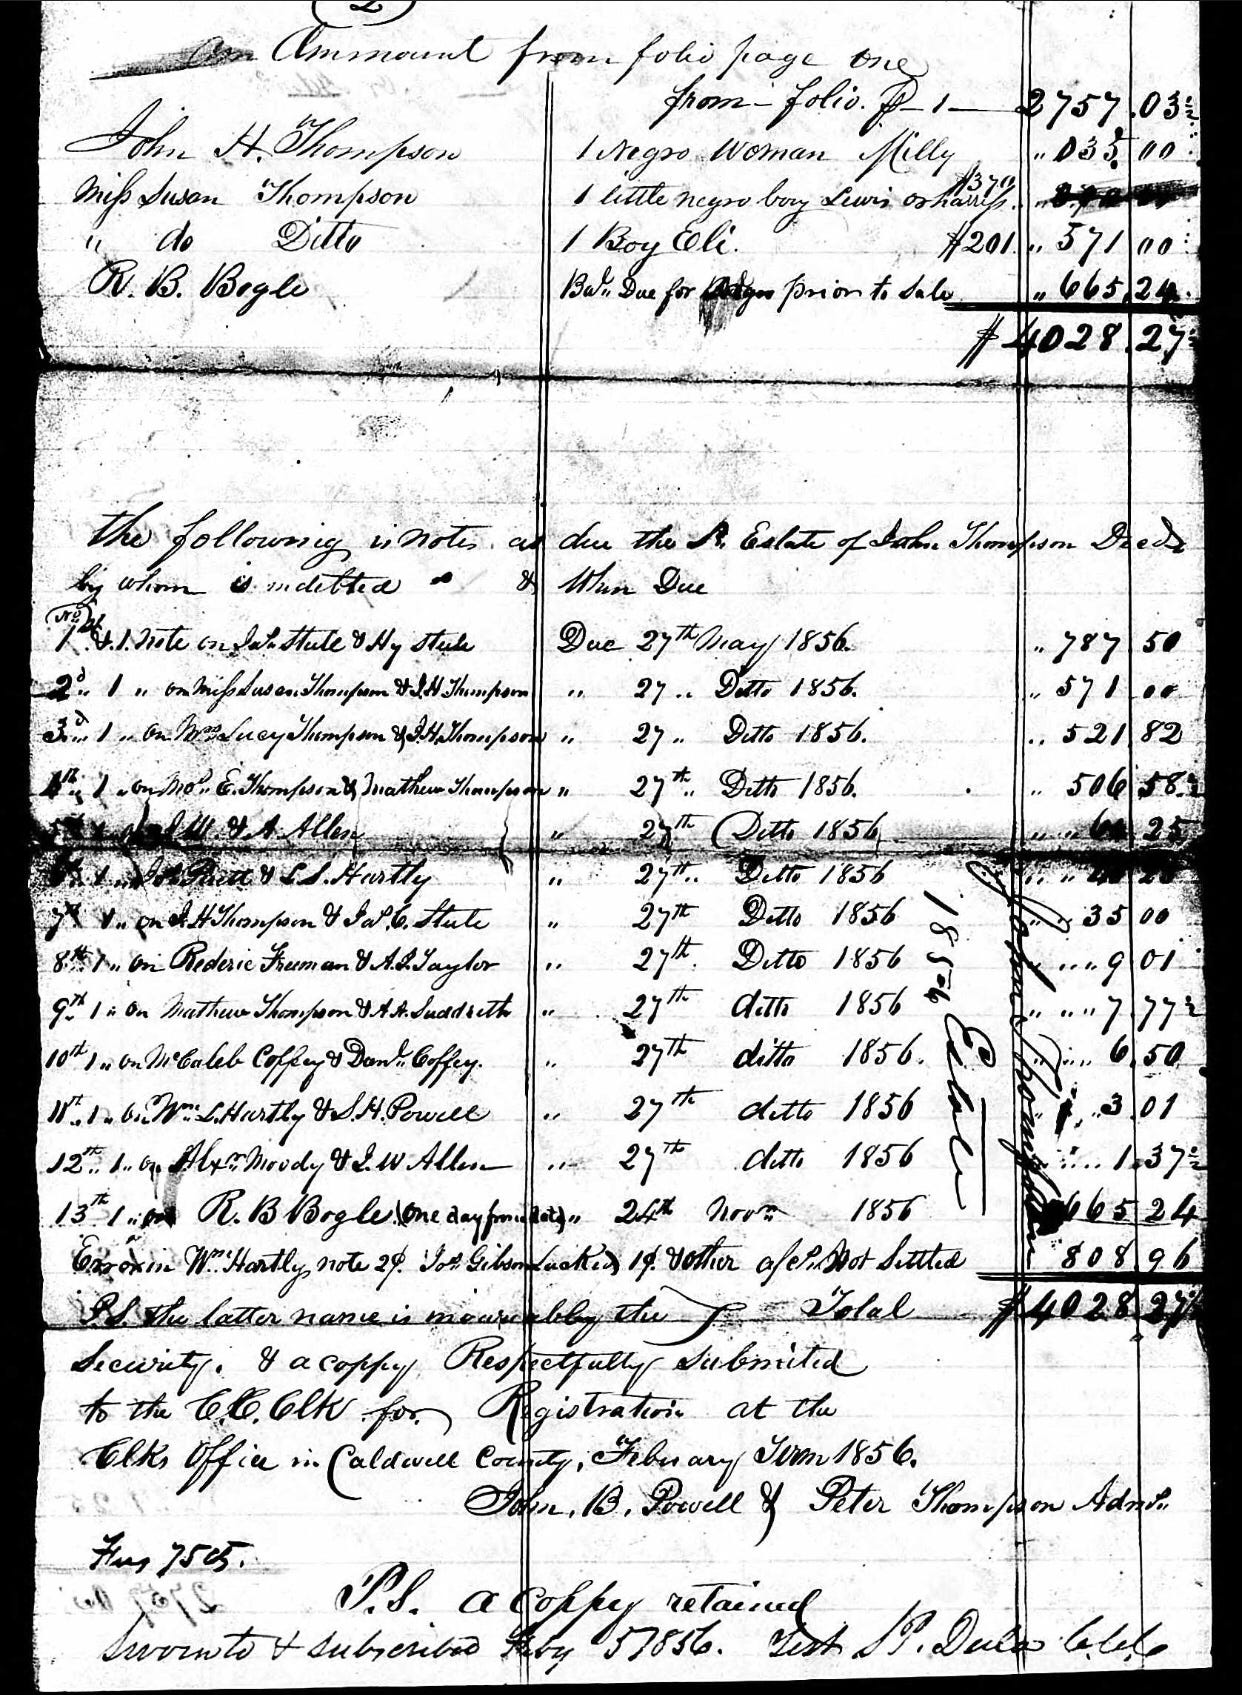 2
an Ammount from folio page one
from - folio. P - 1 - 2757.03
John H. Thompson 1 Negro Woman Milly " 035 00
Miss Susan Thompson 1 little negro boy Lewis or harriss. $370
" do Ditto 1 Boy Eli. $201. " 571 00
R. B. Bogle Bal. Due for prior to Sale " 665.24
$4028.27
the following is notes as due the Estate of John Thompson Decd
by whom is indebted & When Due
No.
1st & 1. Note on Jas. Stule & Hy Stule Due 27th May 1856. " 787 50
2d " 1 " on Miss Susan Thompson & J.H. Thompson " 27 " Ditto 1856. " 571 00
3d " 1 " on Mrs Lucy Thompson & J.H. Thompson " 27 " Ditto 1856. " 521 82
4th " 1 " on E. Thompson & Mathew Thompson " 27th " Ditto 1856. " 506 58
5th J. W. & A. Allen " 27th Ditto 1856 25
1 " & L S. Hartly " 27th " Ditto 1856
7th 1 " on J. H Thompson & Jas. C. Stule " 27th Ditto 1856 " 35 00
8th 1 " on Rederic Freeman & A. J. Taylor " 27th Ditto 1856 " 9 01
9th 1 " on Mathew Thompson & A A. Suddreth " 27th ditto 1856 " 7 77
10th 1 " on McCaleb Coffey & Danl. Coffey. " 27th ditto 1856. " 6.50
11th 1 " on Wm. L. Hartly & S. H. Powell " 27th ditto 1856 " 3 01
12th " 1 " on Alxr. Moody & J. W Allen " 27th ditto 1856 " 1.37
13th 1 " on R. B Bogle (One day from date) " 24th Novm 1856 665 24
Error in Wm. Hartly note 2¢ Jos. Gibson Lacked 1¢ & other a/cs. Not Settled 808 96
P.S. the latter name is the Total $4028 27
Security. & a coppy Respectfully Submited
to the C.C. Clk for Registration at the
Clks Office in Caldwell County, February Term 1856.
John. B. Powell & Peter Thompson Admts.
75cts.
P.S. a coppy retained
Sworn to & subscribed Feby 5 1856. Test S P. Dula C.C.C
John Thompson
Estate
1856